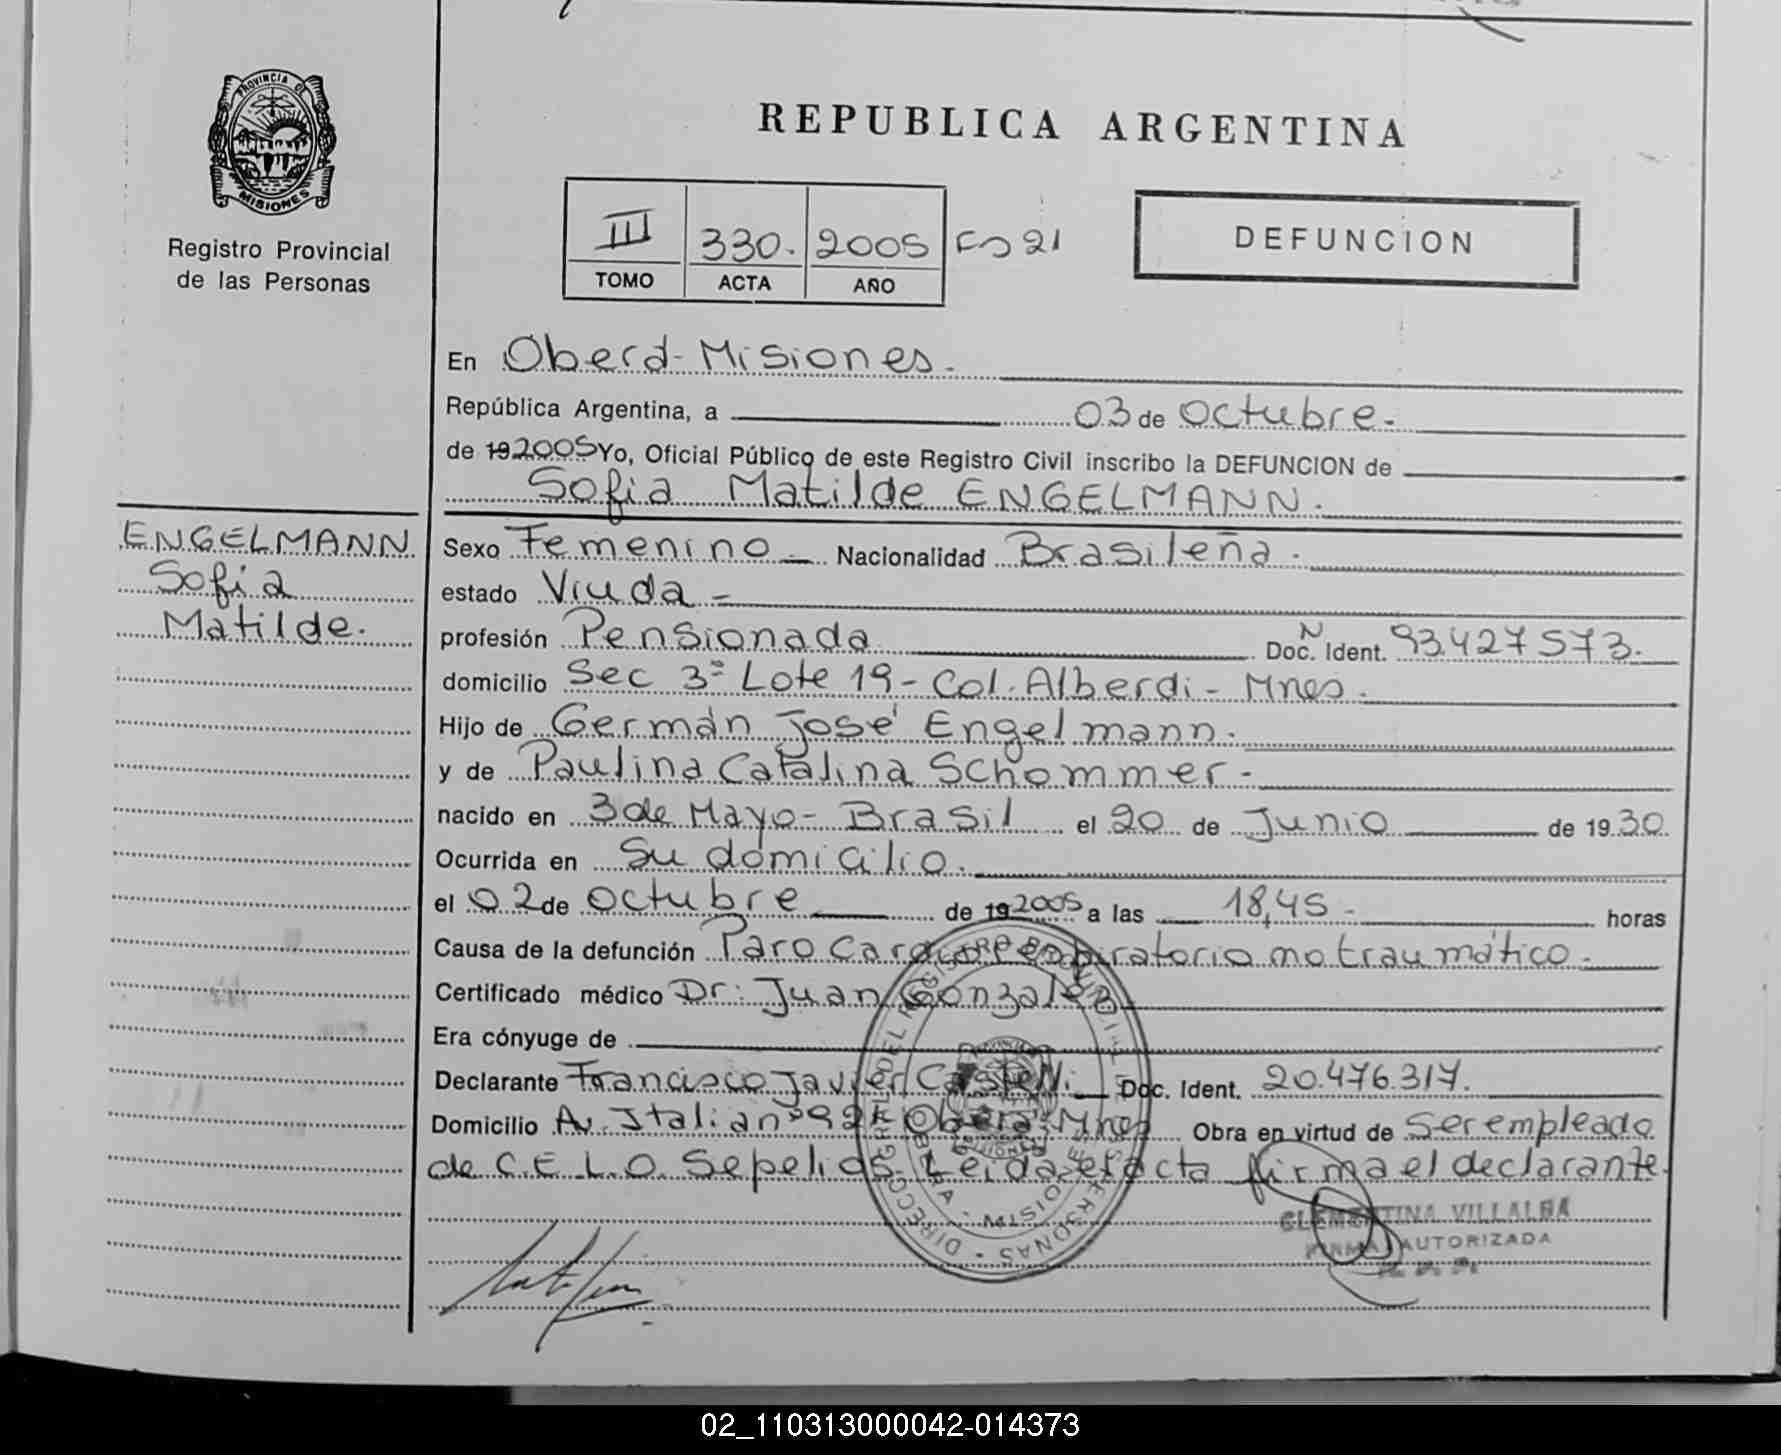 PROVINCIA DE
MISIONES
Registro Provincial
de las Personas
REPUBLICA ARGENTINA
III 330. 2005 Fº 21
TOMO ACTA AÑO
DEFUNCION
En Oberá-Misiones.
República Argentina, a 03 de Octubre.
de 19 2005 Yo, Oficial Público de este Registro Civil inscribo la DEFUNCION de
Sofia Matilde ENGELMANN.
ENGELMANN
Sofia
Matilde.
Sexo Femenino Nacionalidad Brasileña.
estado Viuda -
profesión Pensionada Doc. N Ident. 93.427573.
domicilio Sec 3ª Lote 19 - Col. Alberdi - Mnes.
Hijo de Germán José Engelmann.
y de Paulina Catalina Schommer -
nacido en 3 de Mayo - Brasil el 20 de Junio de 19 30
Ocurrida en Su domicilio.
el 02 de Octubre de 19 2005 a las 18,45 - horas
Causa de la defunción Paro Cardiorrespiratorio no traumático -
Certificado médico Dr: Juan Gonzalez
Era cónyuge de
Declarante Francisco Javier Castelli Doc. Ident. 20.476.317.
Domicilio Av. Italia nº 92 Oberá Mnes Obra en virtud de Ser empleado
de C.E.L.O. Sepelios. Leida el acta firma el declarante.
CLEMENTINA VILLALBA
FIRMA AUTORIZADA
02_110313000042-014373